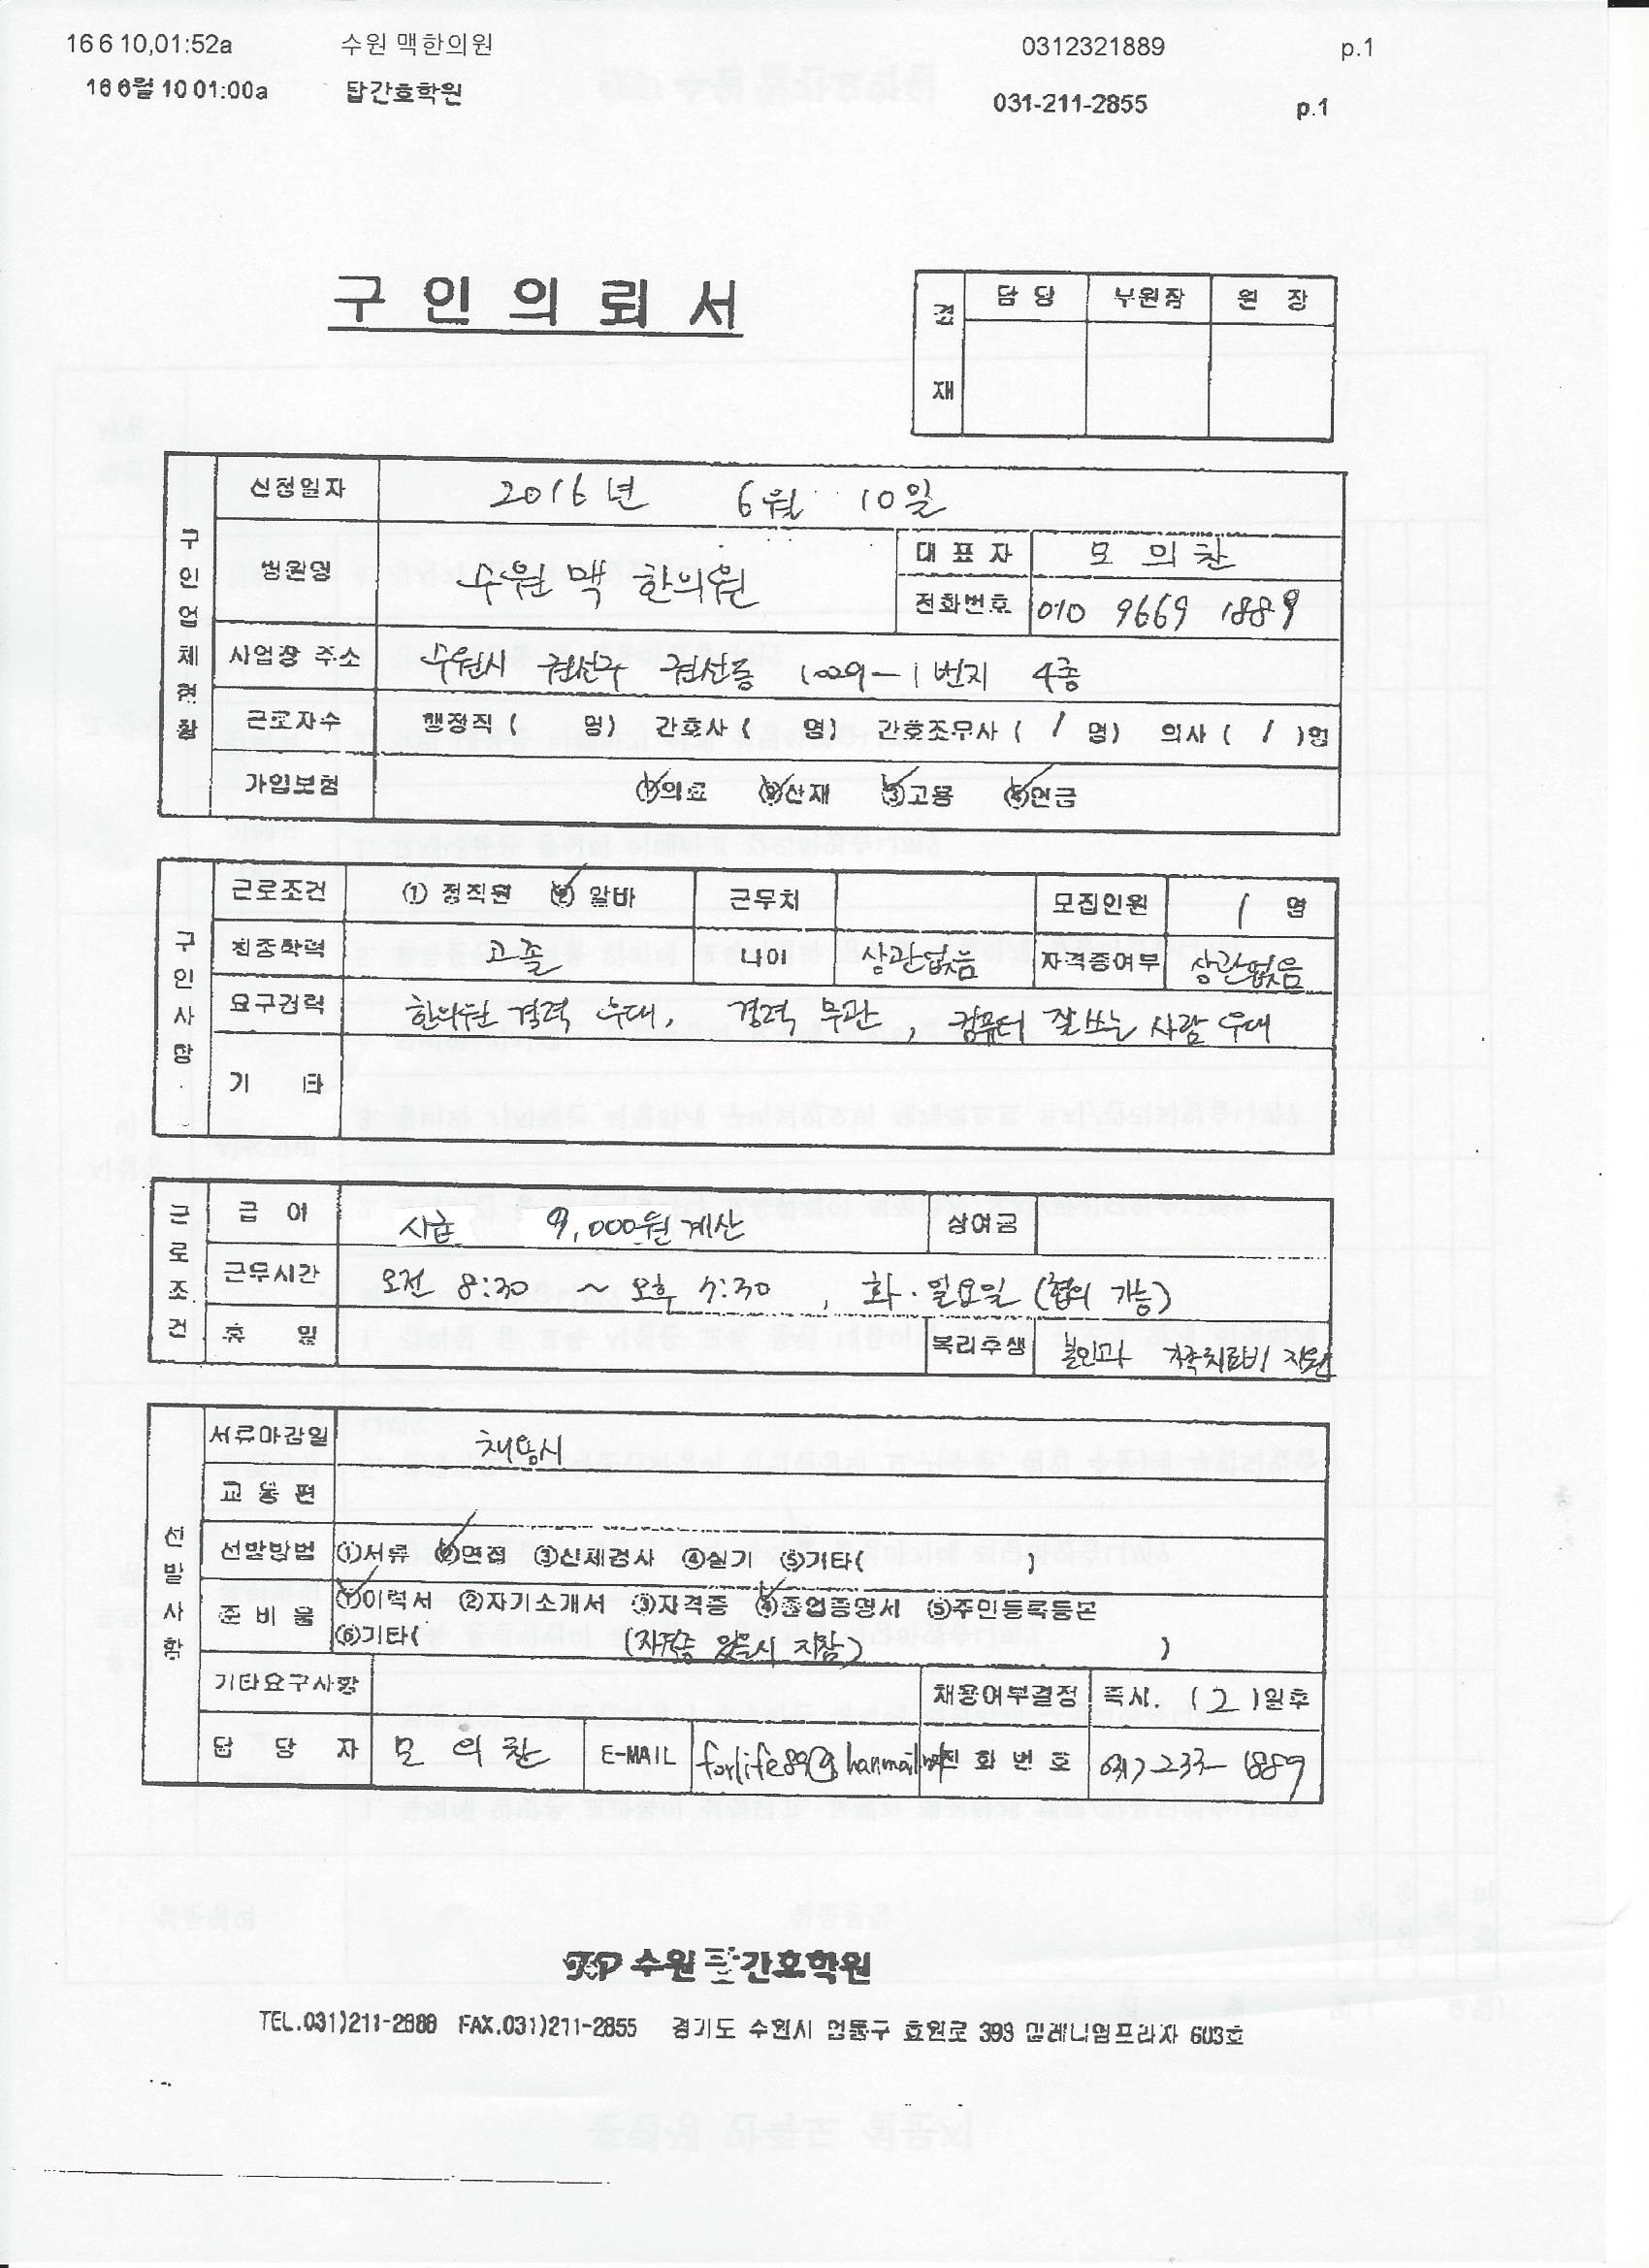 16 6 10,01:52a 수원 맥한의원 0312321889 p.1
16 6월 10 01:00a 탑간호학원 031-211-2855 p.1
구 인 의 뢰 서
결 재 담 당 부원장 원 장
구인업체현황
신청일자 2016년 6월 10일
병원명 수원 맥 한의원 대 표 자 모 의 찬
전화번호 010 9669 1889
사업장 주소 수원시 권선구 권선동 1029-1 번지 4층
근로자수 행정직 ( 명) 간호사 ( 명) 간호조무사 ( 1 명) 의사 ( 1 )명
가입보험 ①의료 ②산재 ③고용 ④연금
구인사항
근로조건 ① 정직원 ② 알바 근무처 모집인원 1 명
최종학력 고졸 나이 상관없음 자격증여부 상관없음
요구경력 한의원 경력 우대, 경력 무관, 컴퓨터 잘쓰는 사람 우대
기 타
근로조건
급 여 시급 9,000원 계산 상여금
근무시간 오전 8:30 ~ 오후 7:30, 화·일요일 (협의 가능)
휴 일 복리후생 본인과 가족치료비 지원
선발사항
서류마감일 채용시
교 통 편
선발방법 ①서류 ②면접 ③신체검사 ④실기 ⑤기타( )
준 비 물 ①이력서 ②자기소개서 ③자격증 ④졸업증명서 ⑤주민등록등본
⑥기타( (자격증 있을시 지참) )
기타요구사항 채용여부결정 즉시. ( 2 )일후
담 당 자 모 의 찬 E-MAIL forlife89@hanmail 전 화 번 호 031) 233-1889
TOP 수원 탑 간호학원
TEL.031)211-2888 FAX.031)211-2855 경기도 수원시 영통구 효원로 393 밀레니엄프라자 603호